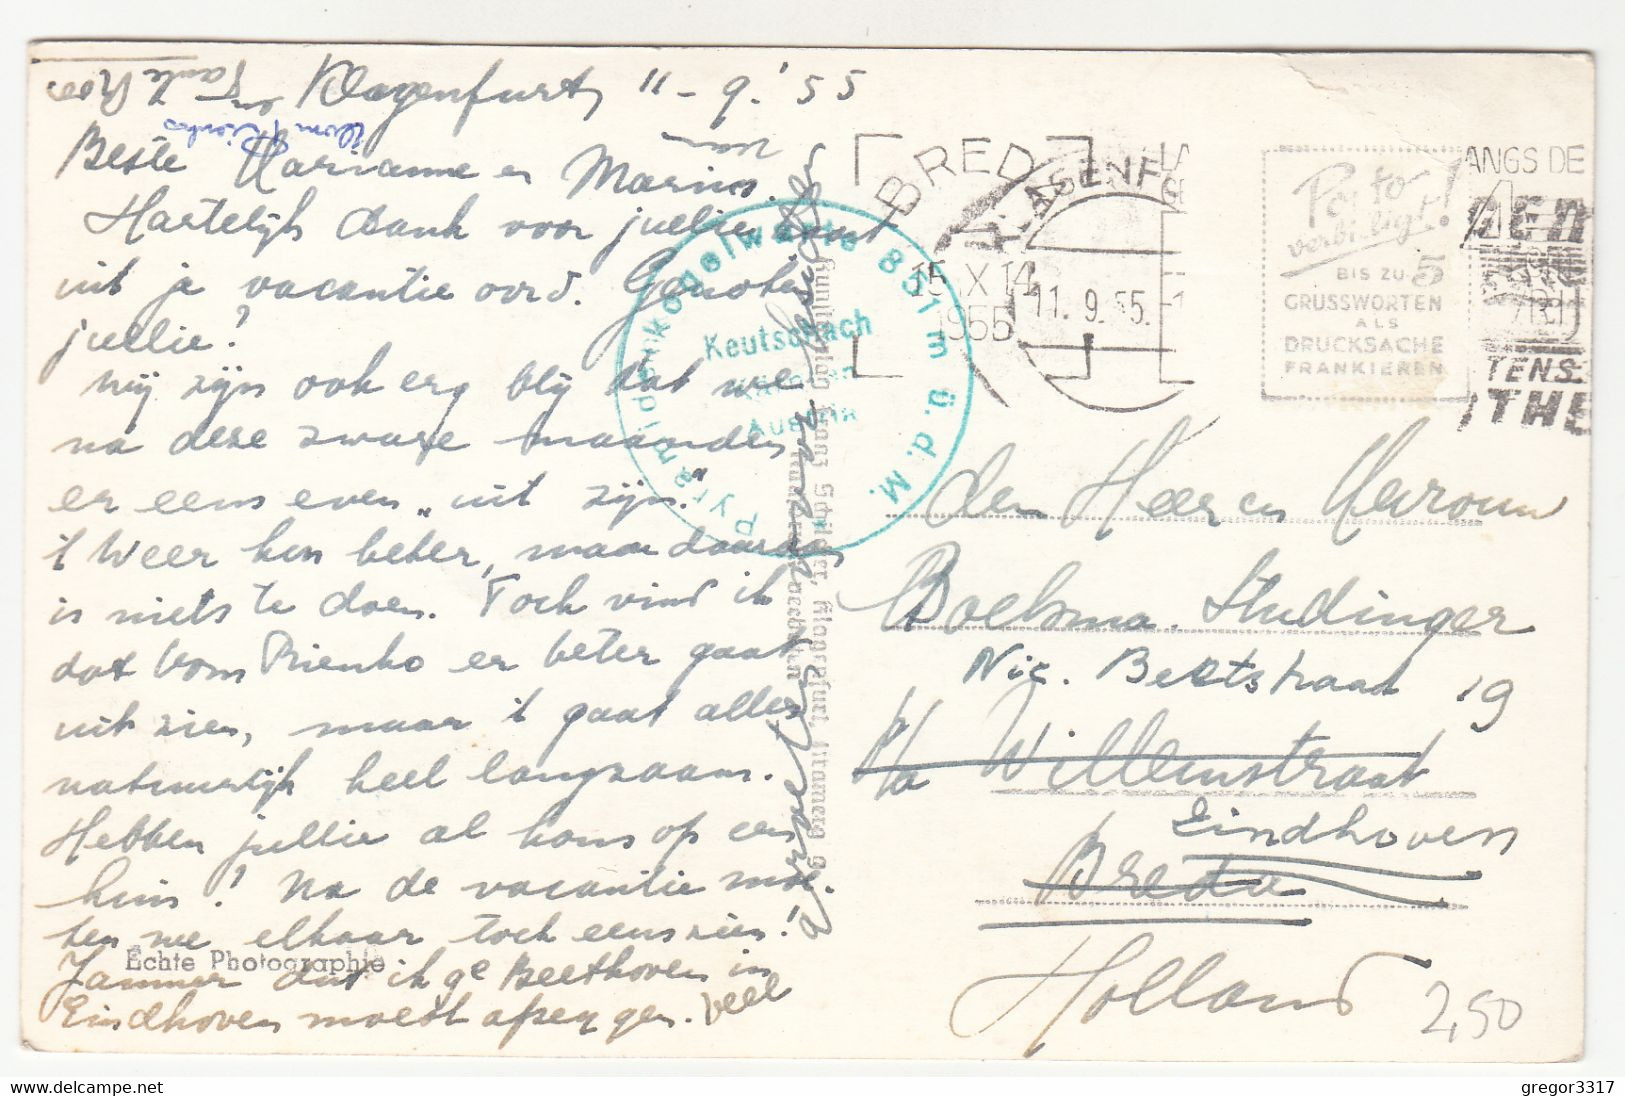 Klagenfurt, 11-9-'55
Beste Marianne en Marius.
Hartelijk dank voor jullie kaart
uit je vacantie oord. Genoten
jullie?
Wij zijn ook erg blij dat we
na deze zware maanden
er eens even „uit zijn."
't Weer kon beter, maar daaraan
is niets te doen. Toch vind ik
dat Oom Rienko er beter gaat
uit zien, maar 't gaat alles
natuurlijk heel langzaam.
Hebben jullie al kans op een
huis! Na de vacantie moe-
ten we elkaar toch eens zien!
Jammer dat ik ge Beethoven in
Eindhoven moest afzeggen. Veel
van
Tante
Oom Rienko
Echte Photographie
Pyramidenkogelwarte 851 m ü.d.M.
Keutschach
Kärnten
Austria
BREDA
15 X 14
1955
KLAGENFURT
11. 9. 55.
Porto-
verbilligt!
BIS ZU 5
GRUSSWORTEN
ALS
DRUCKSACHE
FRANKIEREN
LANGS DE
TENS
THE
den Heer en Mevrouw
Boelsma. Studinger
Nic. Beetsstraat 19
p/a Willemstraat
Eindhoven
Breda
Holland
2,50
gregor3317